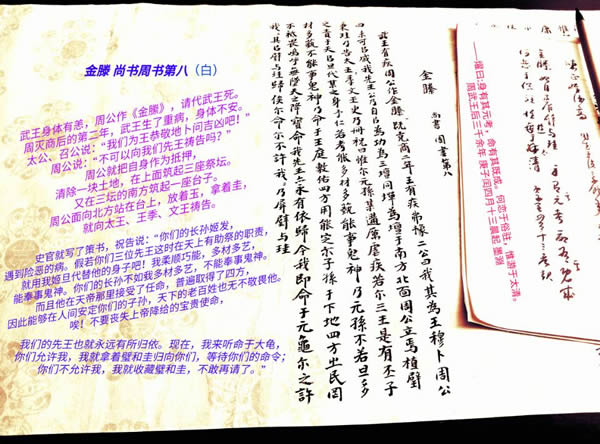 金滕 尚书周书第八（白）
武王身体有恙，周公作《金滕》，请代武王死。
周灭商后的第二年，武王生了重病，身体不安。
太公、召公说：“我们为王恭敬地卜问吉凶吧！”
周公说：“不可以向我们先王祷告吗？”
周公就把自身作为抵押，
清除一块土地，在上面筑起三座祭坛。
又在三坛的南方筑起一座台子。
周公面向北方站在台上，放着玉，拿着圭，
就向太王、王季、文王祷告。
史官就写了策书，祝告说：“你们的长孙姬发，
遇到险恶的病。假若你们三位先王这时在天上有助祭的职责，
就用我姬旦代替他的身子吧！我柔顺巧能，多材多艺，
能奉事鬼神。你们的长孙不如我多材多艺，不能奉事鬼神。
而且他在天帝那里接受了任命，普遍取得了四方，
因此能够在人间安定你们的子孙，天下的老百姓也无不敬畏他。
唉！不要丧失上帝降给的宝贵使命，
我们的先王也就永远有所归依。现在，我来听命于大龟，
你们允许我，我就拿着璧和圭归向你们，等待你们的命令；
你们不允许我，我就收藏璧和圭，不敢再请了。”
金滕 尚书 周书第八
武王有疾周公作金滕 既克商二年王有疾弗豫二公曰我其為王穆卜周公
曰未可以戚我先王公乃自以為功為三坛同墠為壇于南方北面周公立焉植璧
秉珪乃告大王王季文王史乃册祝曰惟尔元孫某遘厲虐疾若尔三王是有丕子
之責于天以旦代某之身予仁若考能多材多藝能事鬼神乃元孫不若旦多
材多藝不能事鬼神乃命于王庭敷佑四方用能定尔子孫于下地四方之民罔
不祗畏嗚呼無墜天之降寶命我先王亦永有依歸今我即命于元龜尔之許
我我其以璧与珪歸俟尔命尔不許我我乃屏璧与珪
曰:身有其元考 命有其既成。何恋于俗驻，惟游于太清。
周武王后三十余年 庚子闰四月十三晨起